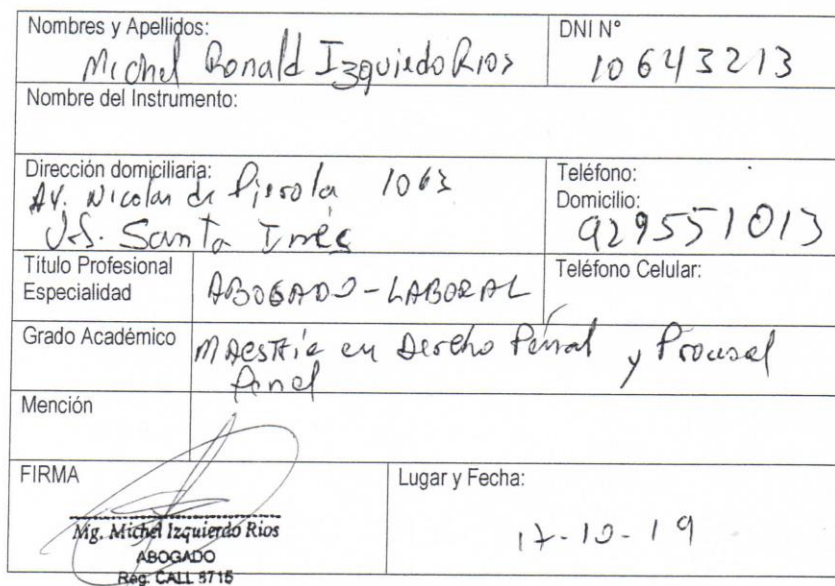 Nombres y Apellidos:
Michel Ronald Izquierdo Rios
DNI N°
10643213
Nombre del Instrumento:
Dirección domiciliaria:
AV. Nicolas de Pierola 1063
Santa Inés
Teléfono:
Domicilio:
929551013
Título Profesional
Especialidad
ABOGADO - LABORAL
Teléfono Celular:
Grado Académico
Maestría en Derecho Penal y Procesal
Penal
Mención
FIRMA
Mg. Michel Izquierdo Rios
ABOGADO
Reg. CALL 8715
Lugar y Fecha:
17-10-19